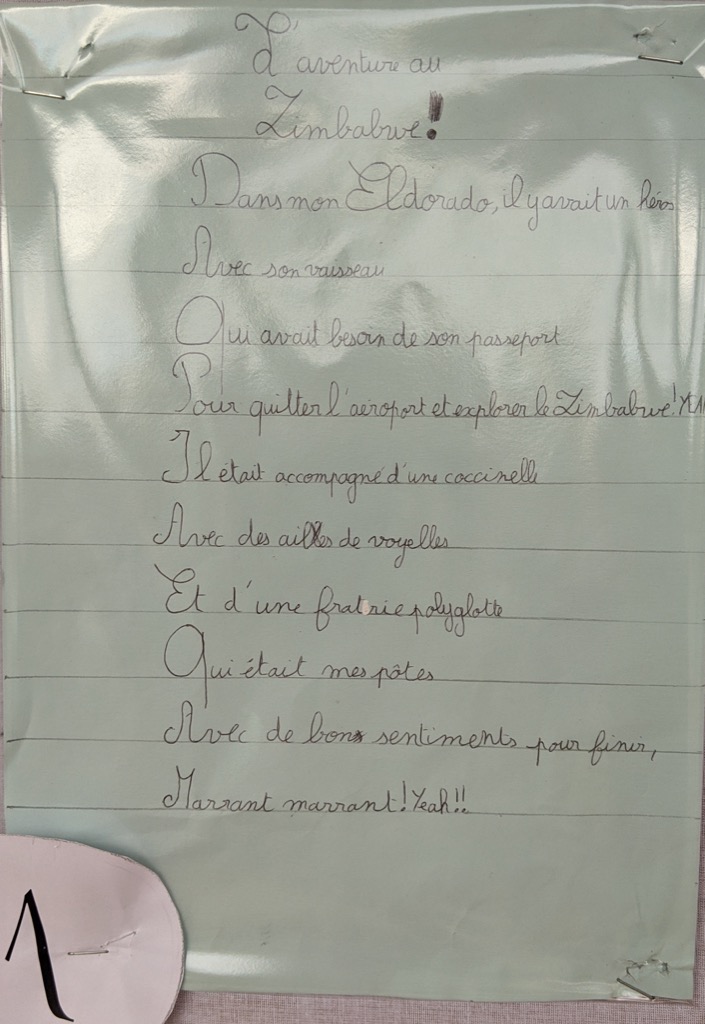 L'aventure au
Zimbabwe!
Dans mon Eldorado, il y avait un héros
Avec son vaisseau
Qui avait besoin de son passeport
Pour quitter l'aéroport et explorer le Zimbabwe! YEAH
Il était accompagné d'une coccinelle
Avec des ailes de voyelles
Et d'une fratrie polyglotte
Qui était mes pôtes
Avec de bons sentiments pour finir,
Marrant marrant! Yeah!!
1